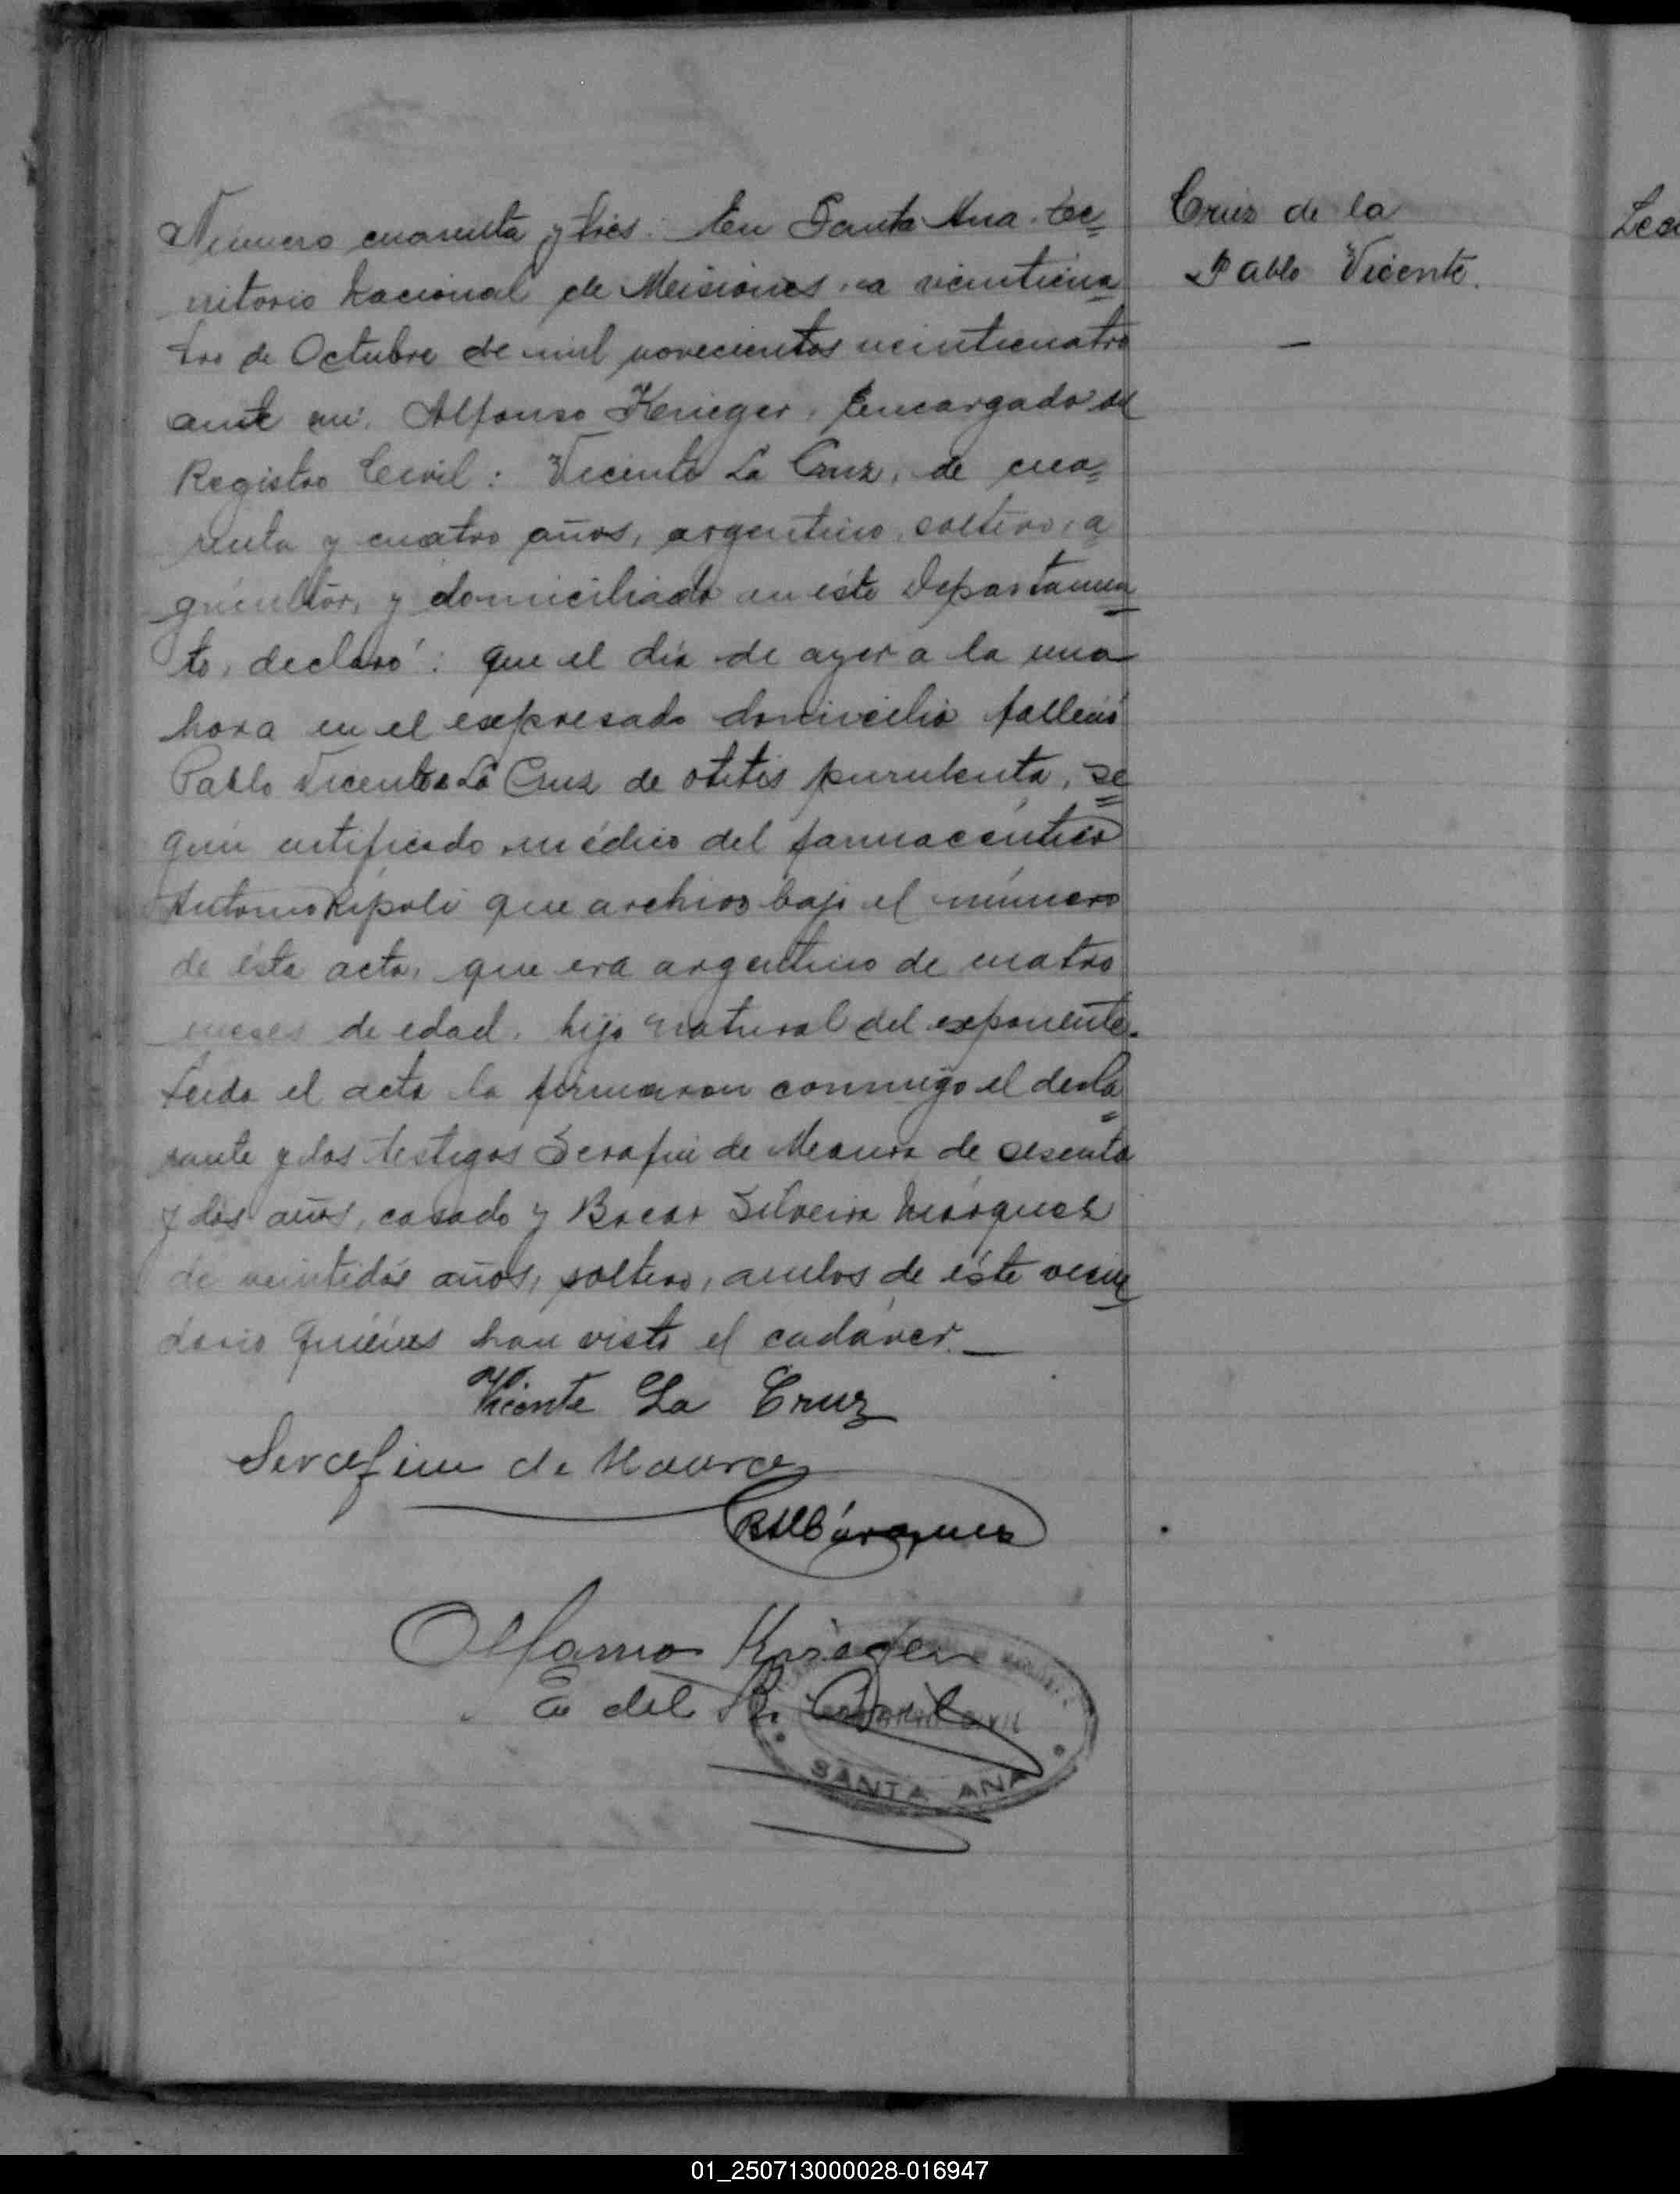 Número cuarenta y tres. En Santa Ana. te=
rritorio Nacional de Misiones, a veinticua=
tro de Octubre de mil novecientos veinticuatro
ante mí. Alfonso Krieger, Encargado del
Registro Civil: Vicente La Cruz, de cua=
renta y cuatro años, argentino, soltero, a=
gricultor, y domiciliado en éste Departamen=
to, declaró: que el día de ayer a la una
hora en el expresado domicilio falleció
Pablo Vicente La Cruz de otitis purulenta, se=
gún certificado médico del farmacéutico
Antonio Ripoli que archivo bajo el número
de ésta acta, que era argentino de cuatro
meses de edad, hijo natural del exponente.
Leida el acta la firmaron conmigo el decla=
rante y los testigos Serafin de Moura de sesenta
y dos años, casado y Silveira Márquez
de veintidós años, soltero, ambos de éste vecin=
dario quiénes han visto el cadáver.—
Vicente La Cruz
Serafim de Moura
Márquez
Alfonso Krieger
E. del R. Civil
REGISTRO CIVIL
SANTA ANA
Cruz de la
Pablo Vicente.
—
01_250713000028-016947